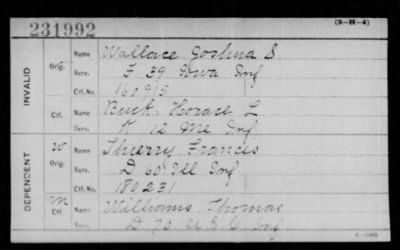 231992
(3-H-4)
INVALID
Orig.
Name Wallace Joshua S.
Serv. F 39 Iowa Inf
Ctf. No. 160915
Ctf.
Name Buck, Horace L
Serv. K 12 Me Inf
DEPENDENT
W
Orig.
Name Thierry, Francis
Serv. D 60 Ill Inf
Ctf. No. 180231
M
Ctf.
Name Williams, Thomas
Serv. D 70 U S C Inf